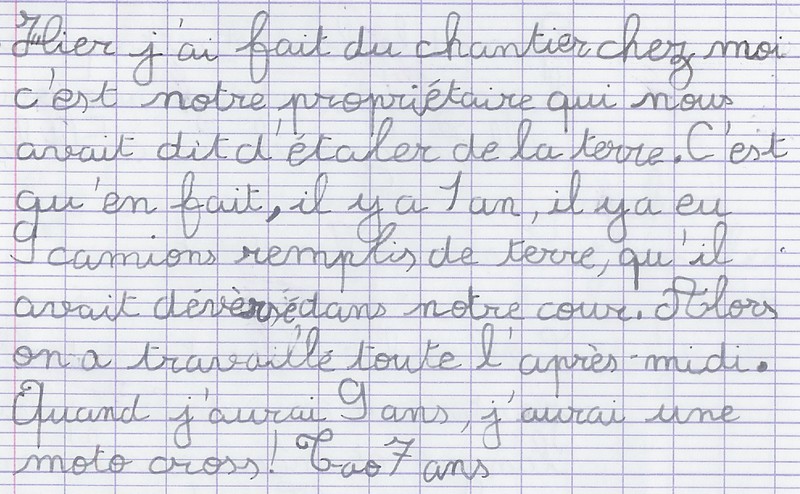 Hier j'ai fait du chantier chez moi
c'est notre propriétaire qui nous
avait dit d'étaler de la terre. C'est
qu'en fait, il y a 1 an, il y a eu
9 camions remplis de terre, qu'il
avait dévèrsé dans notre cour. Alors
on a travaillé toute l'après-midi.
Quand j'aurai 9 ans, j'aurai une
moto cross! Tao 7 ans